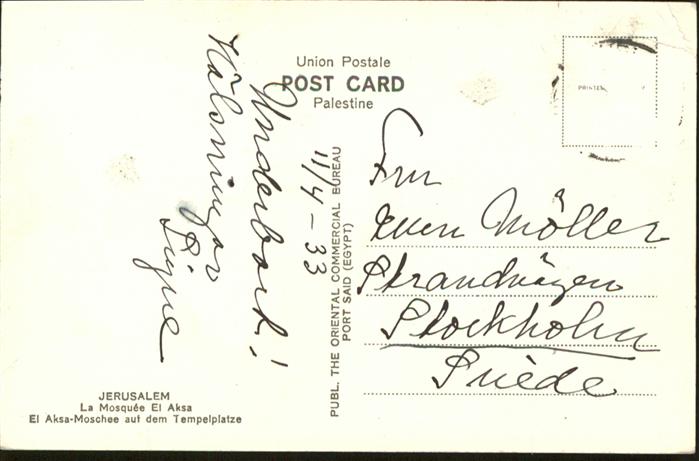 Union Postale
POST CARD
Palestine
PRINTED
Underbart!
Hälsningar
Signe
11/4 - 33
PUBL. THE ORIENTAL COMMERCIAL BUREAU
PORT SAID (EGYPT)
Fru
Möller
Strandvägen
Stockholm
Suède
JERUSALEM
La Mosquée El Aksa
El Aksa-Moschee auf dem Tempelplatze